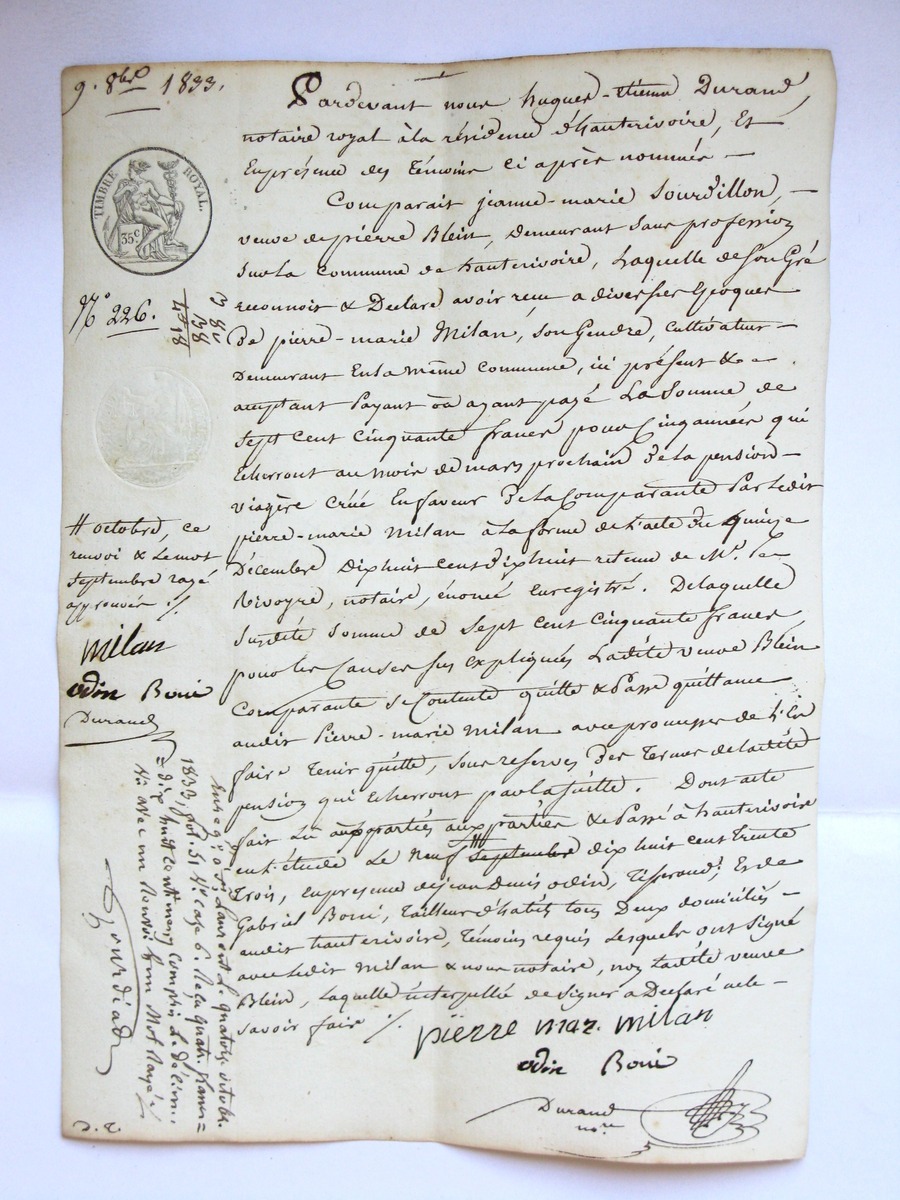 9. 8bre 1833.
TIMBRE ROYAL.
35 c.
No 226.
3 80
38
4 18
Pardevant nous hugues-étienne Durand,
notaire royal à la résidence d'hauterivoire, Et
En présence des Témoins ci après nommés —
Comparait jeanne-marie Sourdillon, —
veuve de pierre Blein, Demeurant sans profession
sur la commune de hauterivoire, Laquelle de son Gré
reconnoit & Déclare avoir reçu a diverses époques
De pierre-marie Milan, son Gendre, cultivateur —
Demeurant En la même commune, ici présent & a
ceptant Payant ou ayant payé La Somme de
Sept Cent Cinquante francs pour Cinq années qui
Echerront au mois de mars prochain De la pension —
viagère créée En faveur De la Comparante Par Ledit
pierre-marie Milan à la forme de L'acte du quinze
Décembre Dix huit cent Dix huit retenu de Me. La
Rivoyre, notaire, énoncé Enregistré. De laquelle
Susdite Somme de Sept Cent Cinquante francs
pour les Causes sus expliqués Ladite veuve Blein
Comparante se Contente quitte & Passe quittance
audit Pierre-marie Milan avec promesse de L'En
faire Tenir quitte, sous reserves Des Termes de Ladite
pension qui Echerront par la suitte. Dont acte
fait Lu aux parties aux parties & Passé à hauterivoire
en L'étude Le Neuf Septembre dix huit cent Trente
Trois, en presence de jean Denis odin, Tisserand, Et de
Gabriel Boni, Tailleur d'habits tous Deux domiciliés —
audit hauterivoire, Témoins requis Lesquels ont signé
avec Ledit Milan & nous notaire, non Ladite veuve
Blein, Laquelle interpellée de signer a Déclaré ne le —
savoir faire ./.
pierre mar. milan
odin Boni
Durand
nore
# octobre, ce
renvoi & Le mot
septembre rayé
approuvés ./.
milan
odin Boni
Durand
Enreg. à St Laurent Le quatorze octobre
1833, fol. 51 Ve case 6. Reçu quatre francs
dix huit centimes compris Le décime.
avec un Renvoi & un Mot Rayé